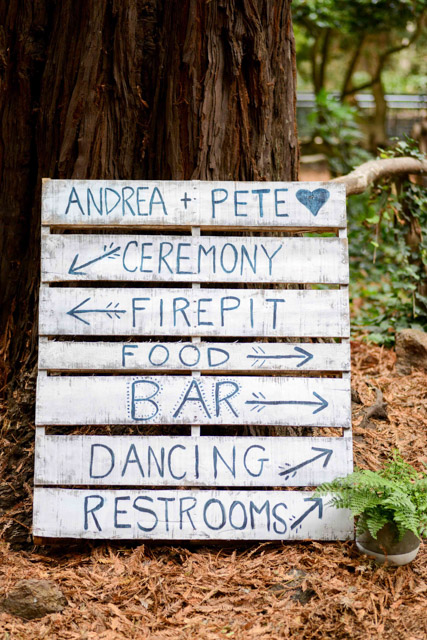 ANDREA + PETE ♥
↙ CEREMONY
← FIREPIT
FOOD →
BAR →
DANCING ↗
RESTROOMS ↗